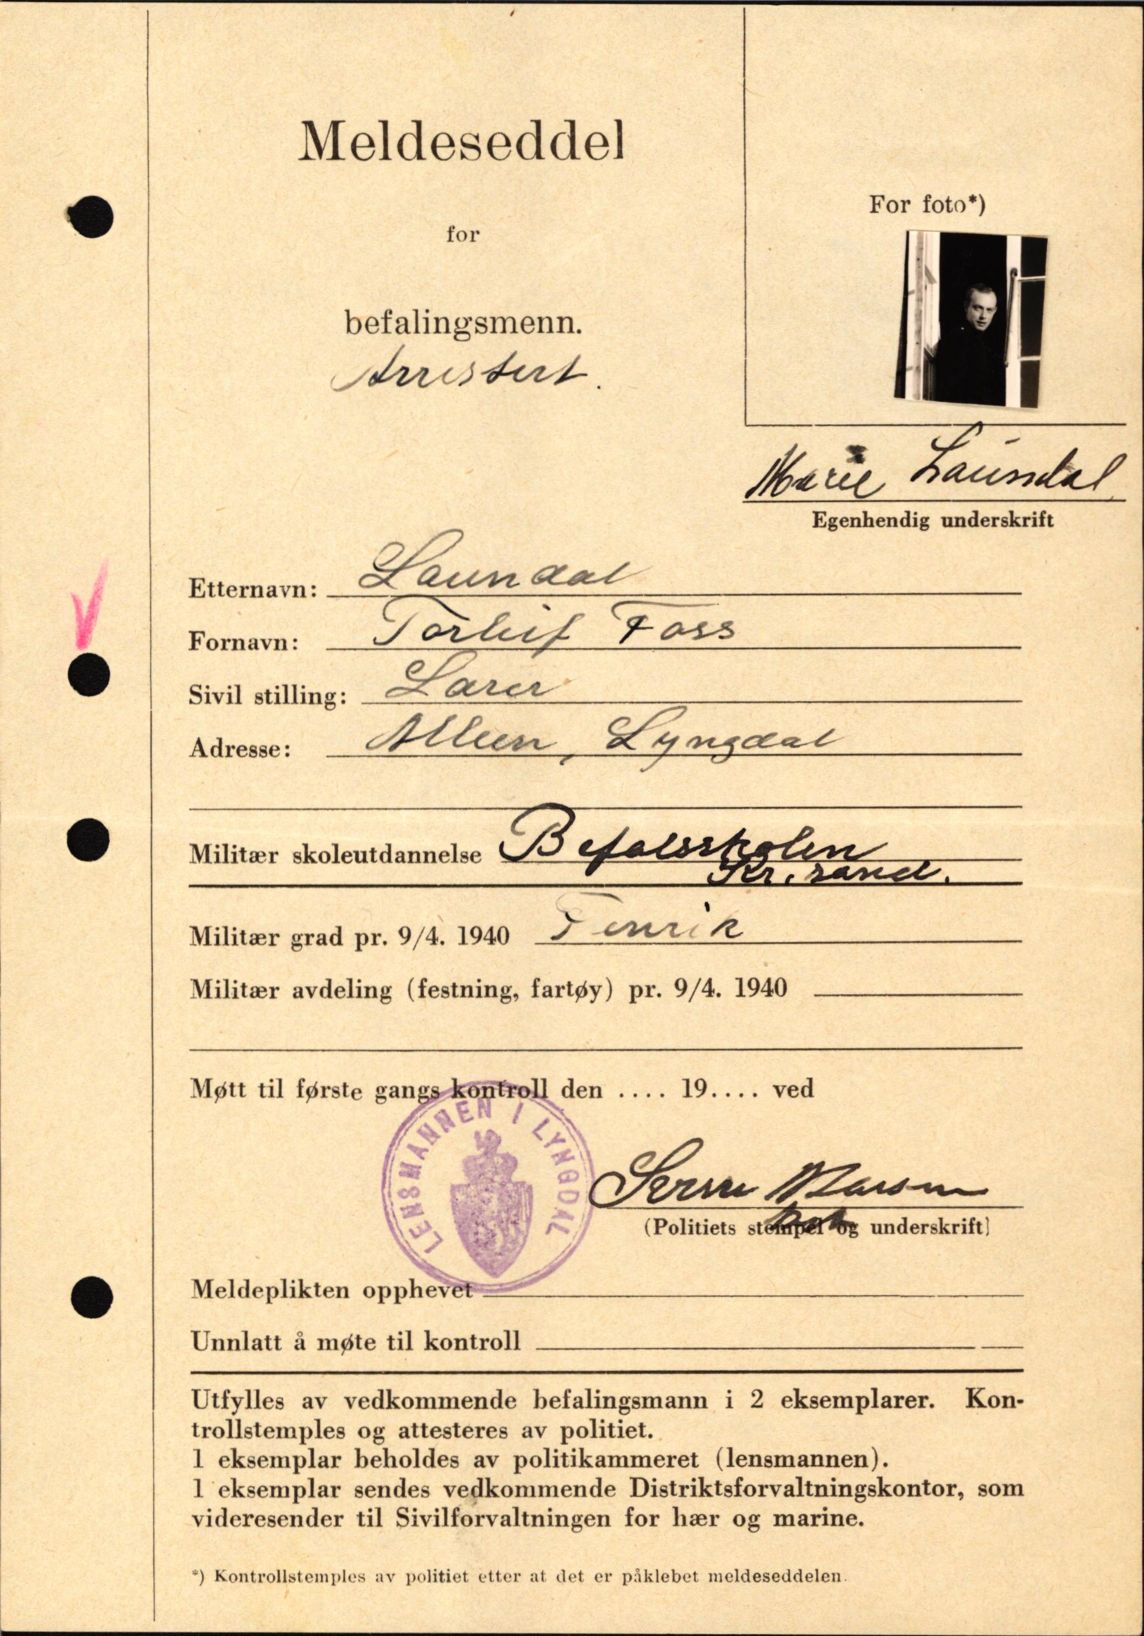 Meldeseddel
for
befalingsmenn.
Arrestert.
For foto*)
Marie Laundal
Egenhendig underskrift
Etternavn: Laundal
Fornavn: Torleif Foss
Sivil stilling: Lærer
Adresse: Alleen, Lyngdal
Militær skoleutdannelse Befalsskolen
Kr.sand.
Militær grad pr. 9/4. 1940 Fenrik
Militær avdeling (festning, fartøy) pr. 9/4. 1940
Møtt til første gangs kontroll den .... 19.... ved
LENSMANNEN I LYNGDAL
(Politiets stempel og underskrift)
Meldeplikten opphevet
Unnlatt å møte til kontroll
Utfylles av vedkommende befalingsmann i 2 eksemplarer. Kon-
trollstemples og attesteres av politiet.
1 eksemplar beholdes av politikammeret (lensmannen).
1 eksemplar sendes vedkommende Distriktsforvaltningskontor, som
videresender til Sivilforvaltningen for hær og marine.
*) Kontrollstemples av politiet etter at det er påklebet meldeseddelen.